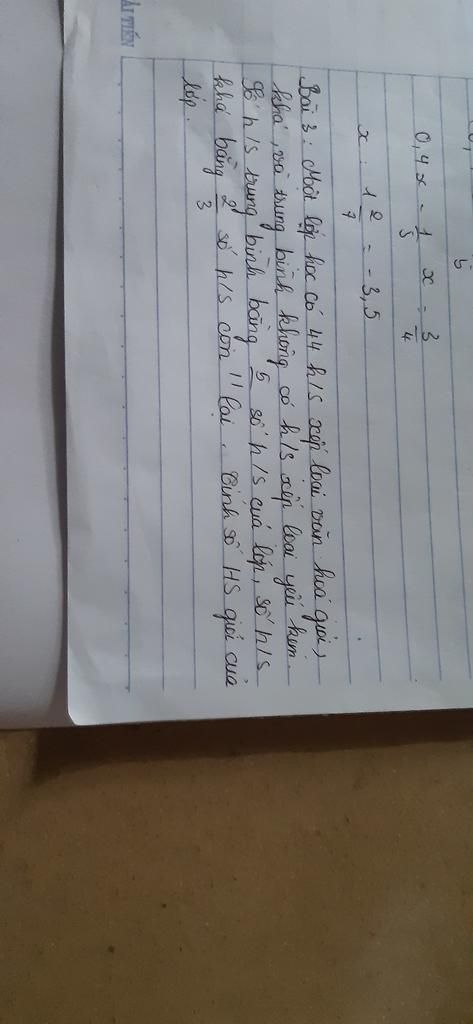 0,4x - 1/5 x = 3/4
x : 1 2/7 = -3,5
Bài 3: Một lớp học có 44 h/s xếp loại văn hoá giỏi,
khá, và trung bình không có h/s xếp loại yếu kém.
Số h/s trung bình bằng 5/11 số h/s của lớp, số h/s
khá bằng 2/3 số h/s còn lại. Tính số HS giỏi của
lớp.
ẢI TIẾN